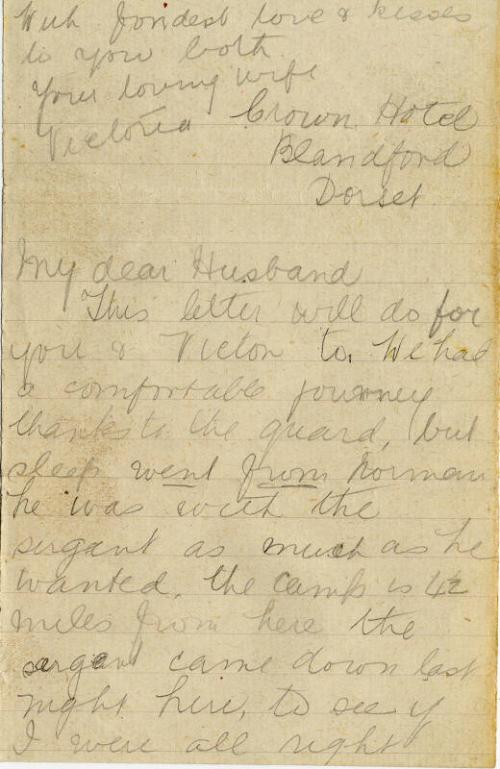 With fondest love & kisses
to you both
Your loving wife
Victoria
Crown Hotel
Blandford
Dorset
My dear Husband
This letter will do for
you & Victor to. We had
a comfortable journey
thanks to the guard, but
sleep went from Norman
he was with the
sergant as much as he
wanted. the camp is 4½
miles from here the
sergant came down last
night here, to see if
I were all right